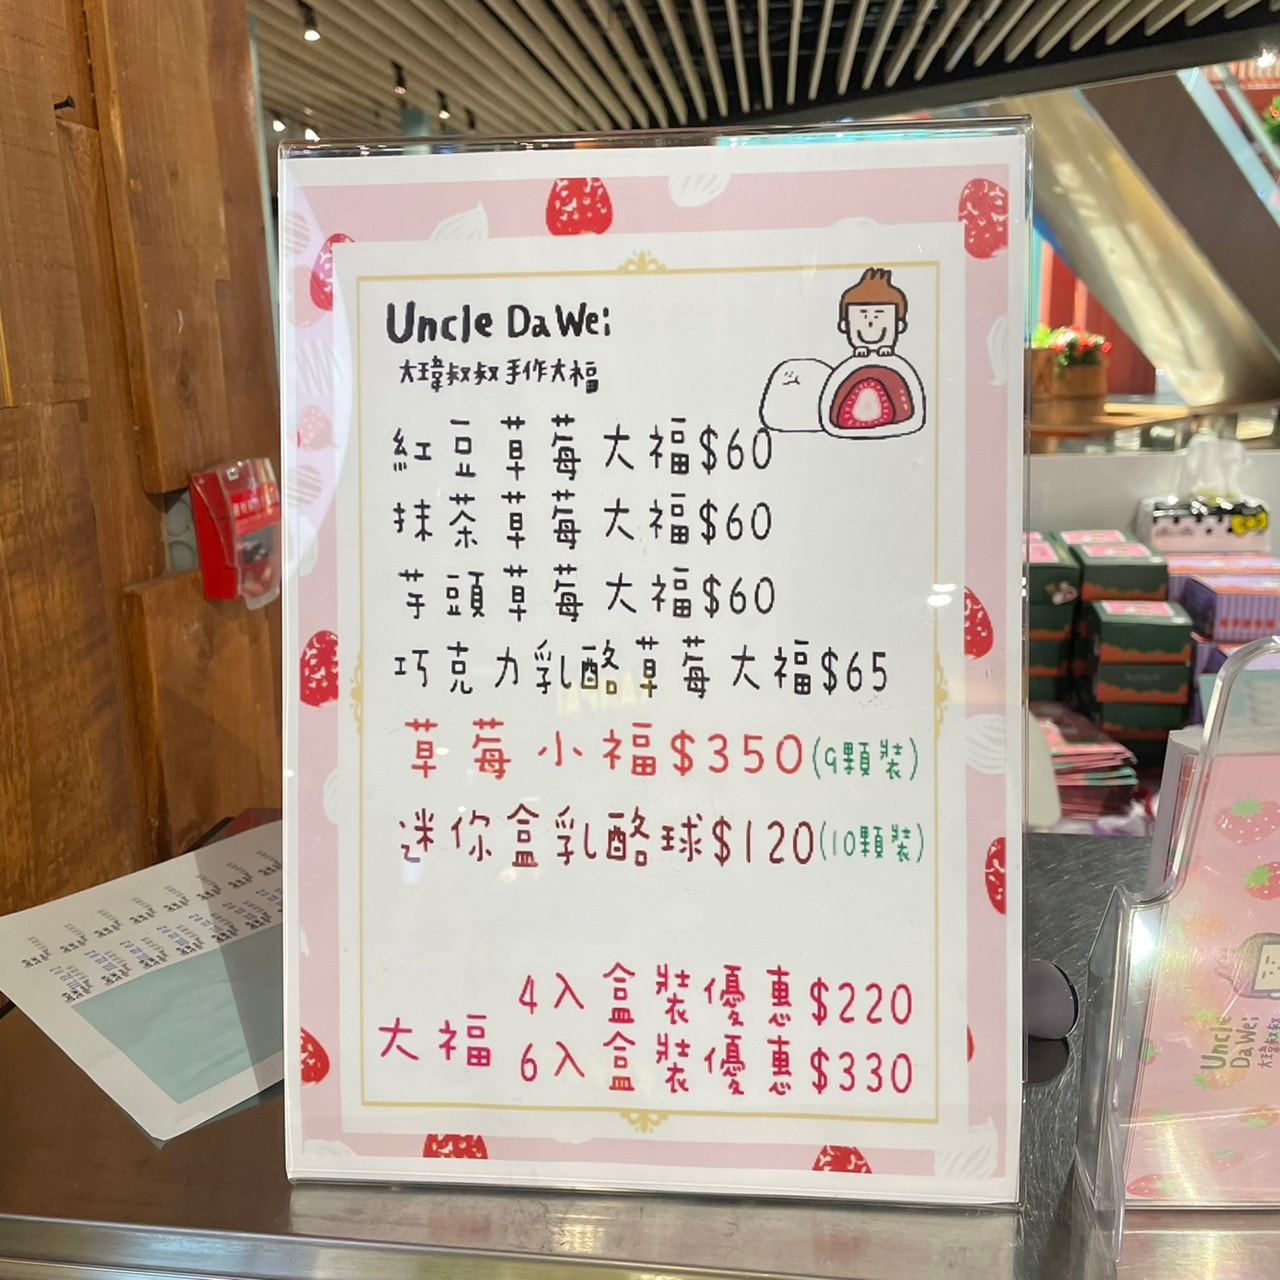 Uncle DaWei
大瑋叔叔手作大福
紅豆草莓大福$60
抹茶草莓大福$60
芋頭草莓大福$60
巧克力乳酪草莓大福$65
草莓小福$350(9顆裝)
迷你盒乳酪球$120(10顆裝)
大福
4入盒裝優惠$220
6入盒裝優惠$330
Uncle
DaWei
大瑋叔叔